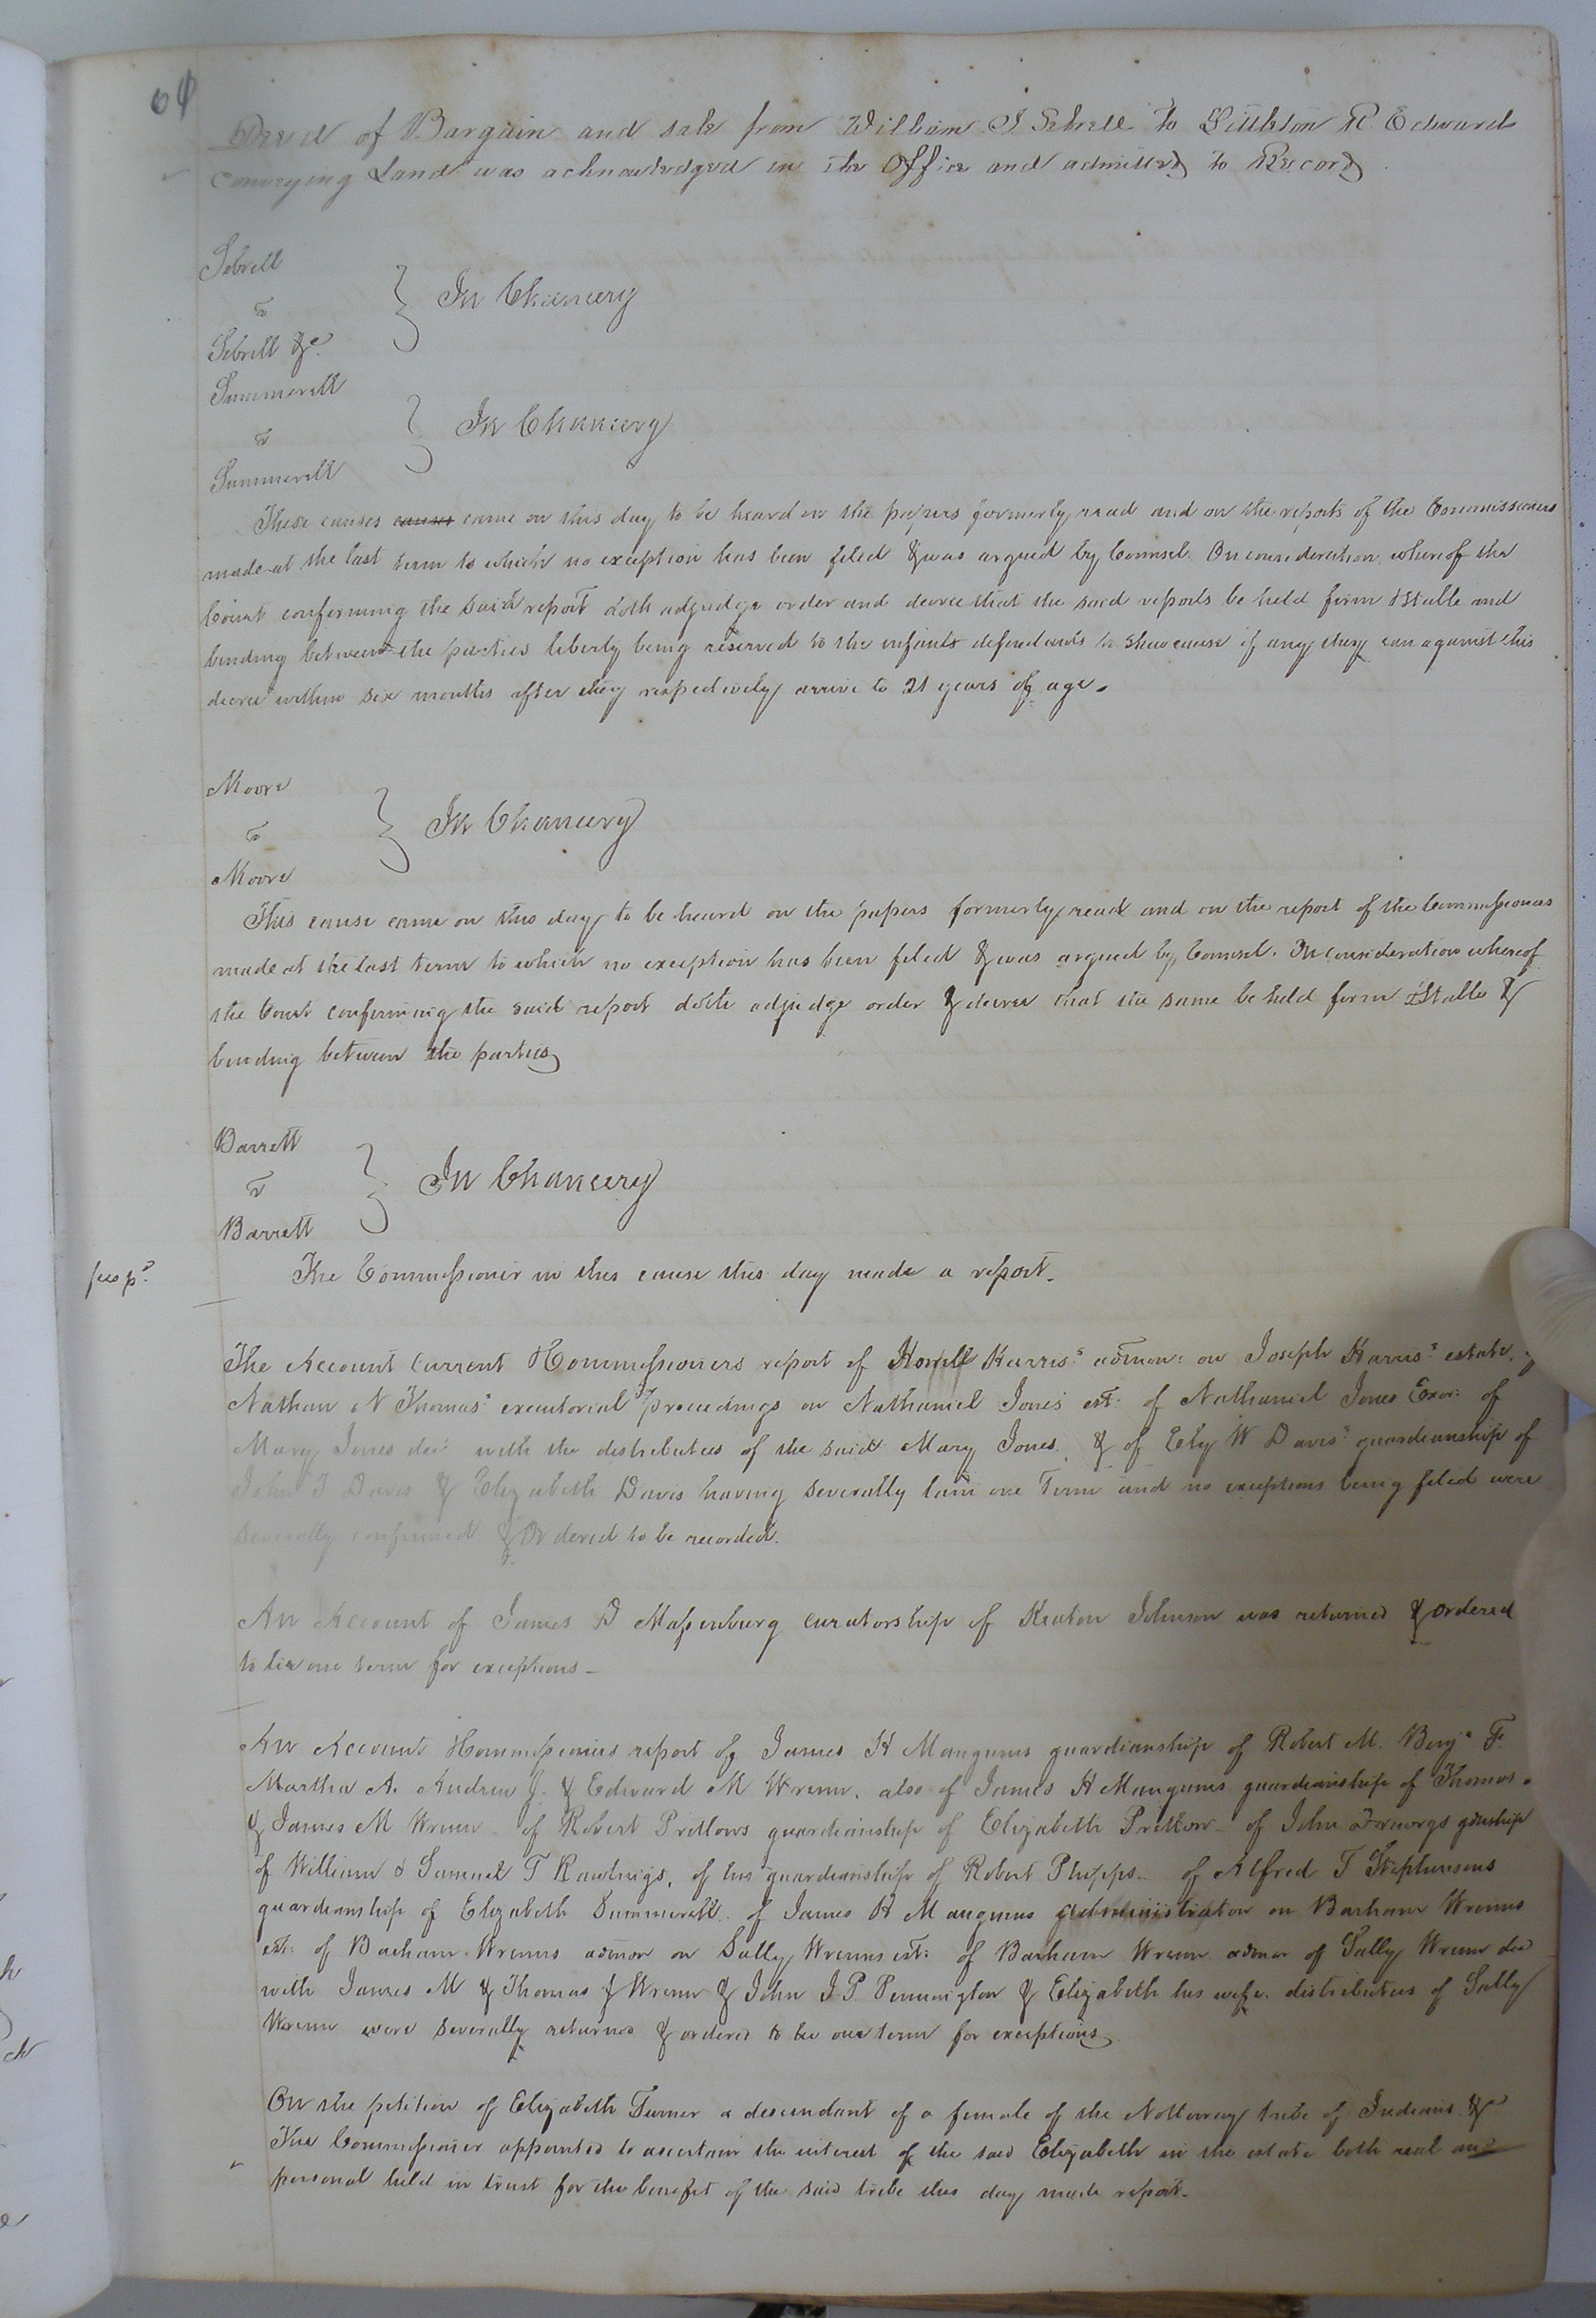 64
Deed of Bargain and sale from William J Sebrell to Littleton R Edwards
conveying Land was acknowledged in the Office and admitted to Record
Sebrell
vs
Sebrell &c.
In Chancery
Summerell
vs
Summerell
In Chancery
These causes causes came on this day to be heard on the papers formerly read and on the reports of the Commissioners
made at the last term to which no exception has been filed & was argued by Counsel. On consideration whereof the
Court confirming the said report doth adjudge order and decree that the said reports be held firm & Stable and
binding between the parties liberty being reserved to the infants defendants to shew cause if any they can against this
decree within six months after they respectively arrive to 21 years of age.
Moore
vs
Moore
In Chancery
This cause came on this day to be heard on the papers formerly read and on the report of the Commissioners
made at the last term to which no exception has been filed & was argued by Counsel. On consideration whereof
the Court confirming the said report doth adjudge order & decree that the same be held firm & Stable &
binding between the parties
Barrett
vs
Barrett
In Chancery
The Commissioner in this cause this day made a report.
The Account Current & Commissioners report of Howell Harris' admon: on Joseph Harris' estate,
Nathan N Thomas' executorial proceedings on Nathaniel Jones est: of Nathaniel Jones Exor: of
Mary Jones dec with the distributees of the said Mary Jones & of Ely W Davis' guardianship of
John T Davis & Elizabeth Davis having severally lain one Term and no exceptions being filed were
severally confirmed & Ordered to be recorded.
An Account of James D Massenburg curatorship of Keaton Johnson was returned & ordered
to lie one term for exceptions -
An Account & Commissioners report of James H Mangums guardianship of Robert M. Benja F.
Martha A. Andrew J. & Edward M Wrenn, also of James H Mangums guardianship of Thomas
& James M Wrenn - of Robert Pretlows guardianship of Elizabeth Pretlow - of John gdnship
of William & Samuel T Rawlings, of his guardianship of Robert Phipps - of Alfred T Stephensons
guardianship of Elizabeth Summerell - of James H Mangums administration on Barham Wrenns
est: of Barham Wrenns admon on Sally Wrenns est: of Barham Wrenn admor of Sally Wrenn dec
with James M & Thomas J Wrenn & John J. P. Pennington & Elizabeth his wife. distributees of Sally
Wrenn were severally returned & ordered to lie one term for exceptions
On the petition of Elizabeth Turner a descendant of a female of the Nottoway tribe of Indians &c
The Commissioner appointed to ascertain the interest of the said Elizabeth in the estate both real and
personal held in trust for the benefit of the said tribe this day made report.